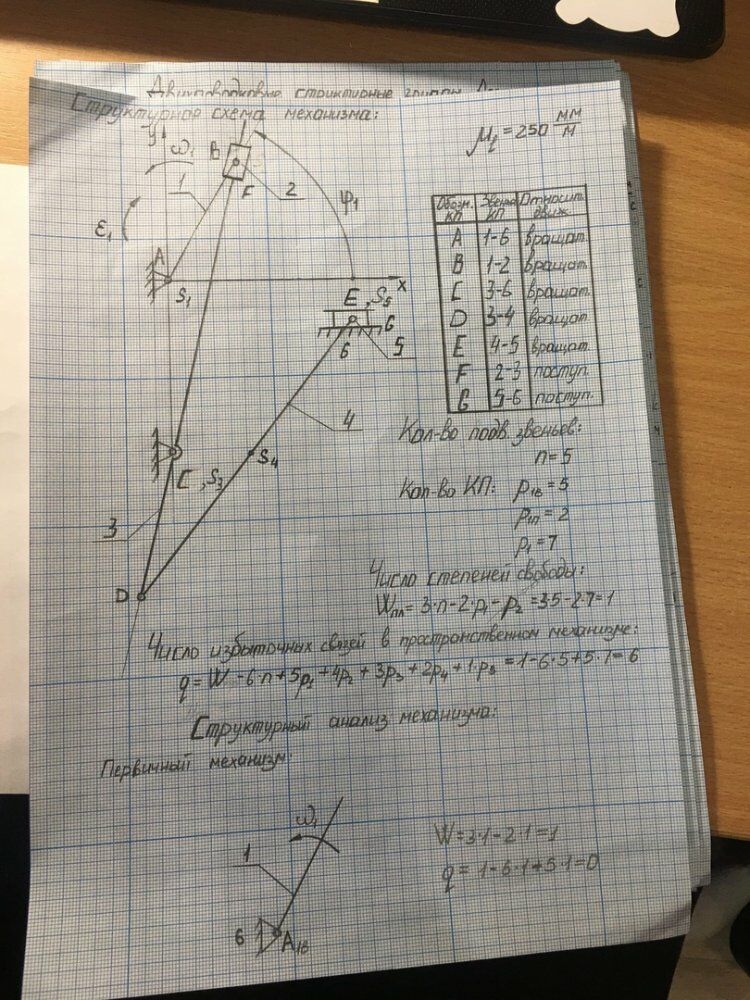 Двухповодковые структурные группы
Структурная схема механизма:
μl = 250 мм/м
y
ω1
B
1
F
2
φ1
ε1
A
S1
x
E, S5
G
6
5
4
S4
C, S3
3
D
Обозн. КП Звенья КП Относит. движ.
A 1-6 вращат.
B 1-2 вращат.
C 3-6 вращат.
D 3-4 вращат.
E 4-5 вращат.
F 2-3 поступ.
G 5-6 поступ.
Кол-во подв. звеньев:
n = 5
Кол-во КП: p1в = 5
p1п = 2
p1 = 7
Число степеней свободы:
Wпл = 3·n - 2·p1 - p2 = 3·5 - 2·7 = 1
Число избыточных связей в пространственном механизме:
q = W - 6·n + 5p1 + 4p2 + 3p3 + 2p4 + 1·p5 = 1 - 6·5 + 5·7 = 6
Структурный анализ механизма:
Первичный механизм:
ω1
1
6
A1в
W = 3·1 - 2·1 = 1
q = 1 - 6·1 + 5·1 = 0